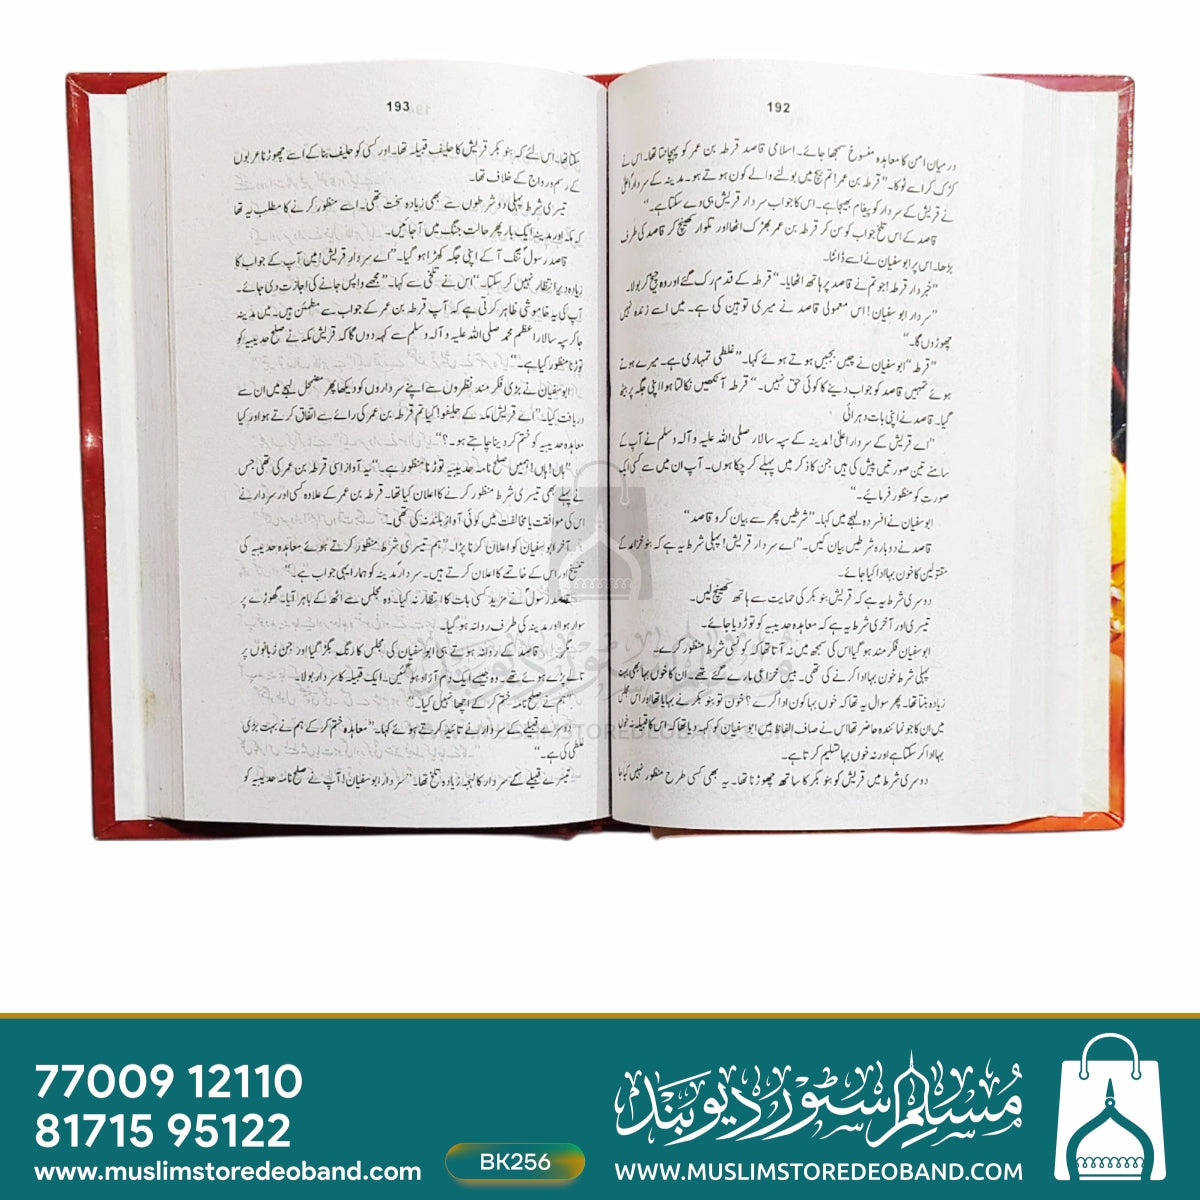 192
درمیان امن کا معاہدہ منسوخ سمجھا جائے۔ اسلامی قاصد قرطہ بن عمر کو پہچانتا تھا۔ اس نے
کڑک کر اسے ٹوکا۔ "قرطہ بن عمر! تم بیچ میں بولنے والے کون ہوتے ہو۔ مدینہ کے سردار اعلیٰ
نے قریش کے سردار کو پیغام بھیجا ہے۔ اس کا جواب سردار قریش ہی دے سکتا ہے۔"
قاصد کے اس تلخ جواب کو سن کر قرطہ بن عمر بھڑک اٹھا اور تلوار کھینچ کر قاصد کی طرف
بڑھا۔ اس پر ابوسفیان نے اسے ڈانٹا۔
"خبردار قرطہ! جو تم نے قاصد پر ہاتھ اٹھایا۔" قرطہ کے قدم رک گئے اور وہ چیخ کر بولا۔
"سردار ابوسفیان! اس معمولی قاصد نے میری توہین کی ہے۔ میں اسے زندہ نہیں
چھوڑوں گا۔"
"قرطہ" ابوسفیان نے چیں بجبیں ہوتے ہوئے کہا۔ "غلطی تمہاری ہے۔ میرے ہوتے
ہوئے تمہیں قاصد کو جواب دینے کا کوئی حق نہیں۔" قرطہ آنکھیں نکالتا ہوا اپنی جگہ پر بیٹھ
گیا۔ قاصد نے اپنی بات دہرائی
"اے قریش کے سردار اعلیٰ! مدینہ کے سپہ سالار صلی اللہ علیہ و آلہ وسلم نے آپ کے
سامنے تین صورتیں پیش کی ہیں جن کا ذکر میں پہلے کر چکا ہوں۔ آپ ان میں سے کسی ایک
صورت کو منظور فرمایئے۔"
ابوسفیان نے افسردہ لہجے میں کہا۔ "شرطیں پھر سے بیان کرو قاصد"
قاصد نے دوبارہ شرطیں بیان کیں۔ "اے سردار قریش! پہلی شرط یہ ہے کہ بنو خزاعہ کے
مقتولین کا خون بہا ادا کیا جائے۔
دوسری شرط یہ ہے کہ قریش بنو بکر کی حمایت سے ہاتھ کھینچ لیں۔
تیسری اور آخری شرط یہ ہے کہ معاہدہ حدیبیہ کو توڑ دیا جائے۔
ابوسفیان فکر مند ہو گیا اس کی سمجھ میں نہ آتا تھا کہ کونسی شرط منظور کرے۔
پہلی شرط خون بہا ادا کرنے کی تھی۔ بیس خزاعی مارے گئے تھے۔ ان کا خوں بہا بھی بہت
زیادہ بنتا تھا۔ پھر سوال یہ تھا کہ خوں بہا کون ادا کرے؟ خون تو بنو بکر نے بہایا تھا اور اس مجلس
میں ان کا جو نمائندہ حاضر تھا اس نے صاف الفاظ میں ابوسفیان کو کہہ دیا تھا کہ اس کا قبیلہ نہ خوں
بہا ادا کر سکتا ہے اور نہ خوں بہا تسلیم کرتا ہے۔
دوسری شرط میں قریش کو بنو بکر کا ساتھ چھوڑنا تھا۔ یہ بھی کسی طرح منظور نہیں کیا جا
193
سکتا تھا۔ اس لئے کہ بنو بکر قریش کا حلیف قبیلہ تھا۔ اور کسی کو حلیف بنا کے اسے چھوڑنا عربوں
کے رسم و رواج کے خلاف تھا۔
تیسری شرط پہلی دو شرطوں سے بھی زیادہ سخت تھی۔ اسے منظور کرنے کا مطلب یہ تھا
کہ مکہ اور مدینہ ایک بار پھر حالت جنگ میں آ جائیں۔
قاصد رسولؐ تنگ آ کے اپنی جگہ کھڑا ہو گیا۔ "اے سردار قریش! میں آپ کے جواب کا
زیادہ دیر انتظار نہیں کر سکتا۔" اس نے تلخی سے کہا۔ "مجھے واپس جانے کی اجازت دی جائے۔
آپ کی یہ خاموشی ظاہر کرتی ہے کہ آپ قرطہ بن عمر کے جواب سے مطمئن ہیں۔ میں مدینہ
جا کر سپہ سالار اعظم محمد صلی اللہ علیہ و آلہ وسلم سے کہہ دوں گا کہ قریش مکہ نے صلح حدیبیہ کو
توڑنا منظور کیا ہے۔"
ابوسفیان نے بڑی فکر مند نظروں سے اپنے سرداروں کو دیکھا پھر مضمحل لہجے میں ان سے
دریافت کیا۔ "اے قریش مکہ کے حلیفو! کیا تم قرطہ بن عمر کی رائے سے اتفاق کرتے ہو اور کیا
معاہدہ حدیبیہ کو ختم کر دینا چاہتے ہو۔؟"
"ہاں! ہاں! ہمیں صلح نامہ حدیبیہ توڑنا منظور ہے۔" یہ آواز اسی قرطہ بن عمر کی تھی جس
نے پہلے بھی تیسری شرط منظور کرنے کا اعلان کیا تھا۔ قرطہ بن عمر کے علاوہ کسی اور سردار نے
اس کی موافقت یا مخالفت میں کوئی آواز بلند نہ کی تھی۔
آخر ابوسفیان کو اعلان کرنا پڑا۔ "ہم تیسری شرط منظور کرتے ہوئے معاہدہ حدیبیہ کی
تنسیخ اور اس کے خاتمے کا اعلان کرتے ہیں۔ سردار مدینہ کو ہمارا یہی جواب ہے۔"
قاصد رسولؐ نے مزید کسی بات کا انتظار نہ کیا۔ وہ مجلس سے اٹھ کے باہر آیا۔ گھوڑے پر
سوار ہوا اور مدینہ کی طرف روانہ ہو گیا۔
مگر۔ قاصد کے روانہ ہوتے ہی ابوسفیان کی مجلس کا رنگ بگڑ گیا اور جن زبانوں پر
تالے پڑے ہوئے تھے۔ وہ جیسے ایک دم آزاد ہو گئیں۔ ایک قبیلہ کا سردار بولا۔
"ہم نے صلح نامہ ختم کر کے اچھا نہیں کیا۔"
دوسرے قبیلے کے سردار نے تائید کرتے ہوئے کہا۔ "معاہدہ ختم کر کے ہم نے بہت بڑی
غلطی کی ہے۔"
تیسرے قبیلے کے سردار کا لہجہ زیادہ تلخ تھا۔ "سردار ابوسفیان! آپ نے صلح نامہ حدیبیہ کو
مسلم سٹور دیوبند
WWW.MUSLIMSTOREDEOBAND.COM
77009 12110
81715 95122
www.muslimstoredeoband.com
BK256
مسلم سٹور دیوبند
WWW.MUSLIMSTOREDEOBAND.COM